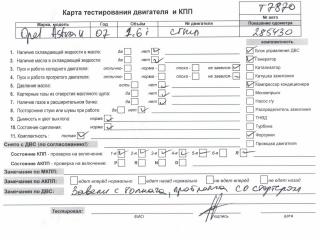 Карта тестирования двигателя и КПП
Т7870
№ авто
Марка, модель Год Объём № двигателя Показание одометра
Opel Astra H 07 1.6i 285430
комплектность:
1. Наличие охлаждающей жидкости в масле: да нет
2. Наличие масла в охлаждающей жидкости: да нет
3. Пуск и работа холодного двигателя: отлично норма плохо
4. Пуск и работа прогретого двигателя: отлично норма плохо
5. Давление масла: есть нет
6. Картерные газы из отверстия масляного щупа: да нет
7. Наличие газов в расширительном бачке: да нет
8. Посторонние стуки или шумы при работе: да нет
9. Дымность и цвет выхлопа: норма
10. Состояние сцепления: норма
11. Комплектность: полная нет
Блок управления ДВС
Генератор
Катализатор
Катушка зажигания
Компрессор кондиционера
Насос г/у
Распределитель зажигания
ТНВД
Турбина
Форсунки
Проводка двигателя
Снято с ДВС (по согласованию):
Состояние КПП - проверка на включение: 1-я 2-я 3-я 4-я 5-я R
Состояние АКПП - проверка на включение: P R N D
Замечания по МКПП:
Замечания по АКПП: едет вперёд нормально едет назад нормально
Замечания по ДВС: Завели с толкача, проблема со стартером
Тестировал:
ФИО подпись дата